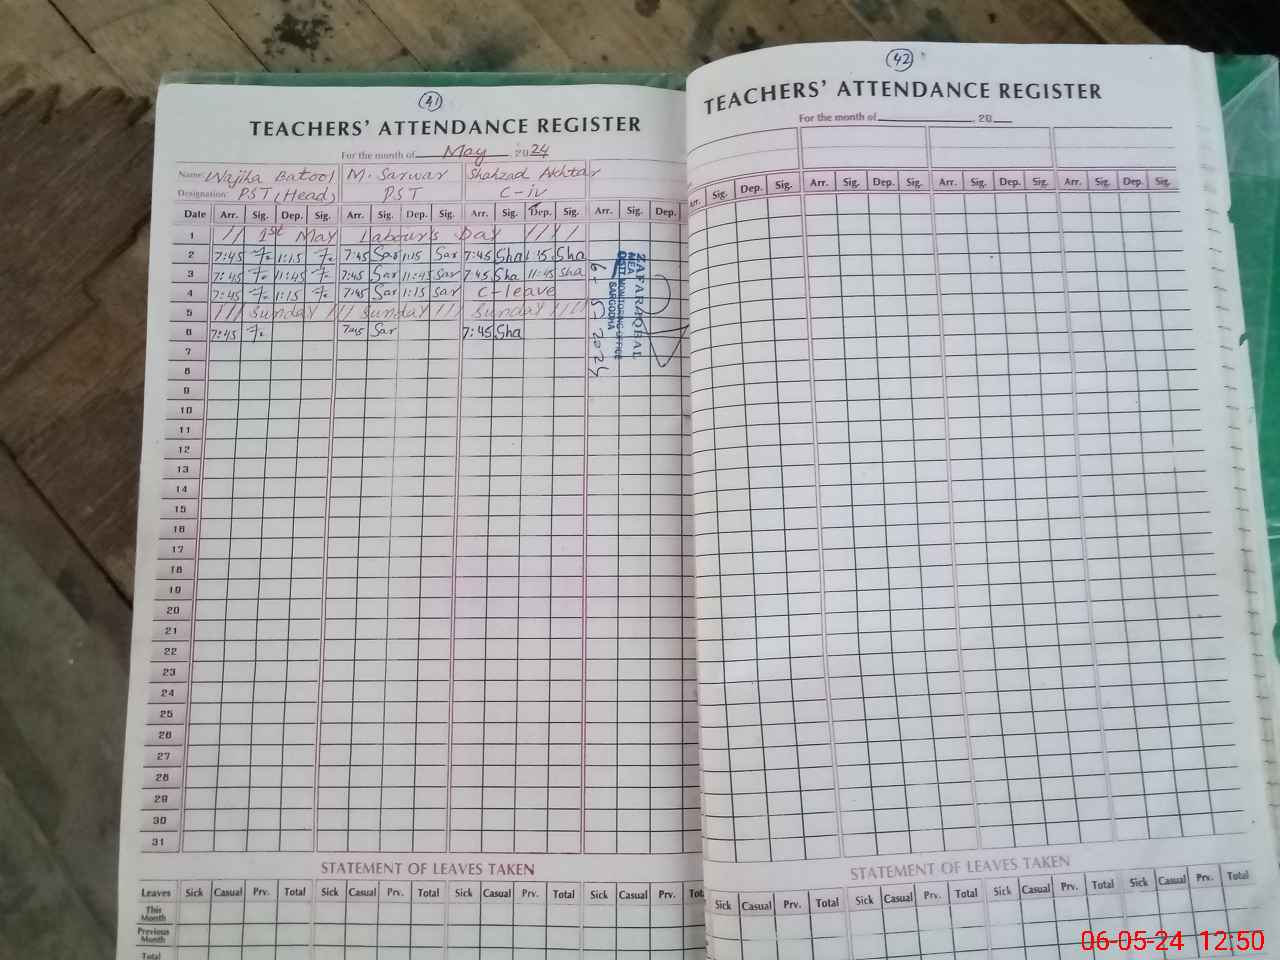 41
TEACHERS' ATTENDANCE REGISTER
For the month of May 2024
Name: Wajiha Batool M. Sarwar Shahzad Akhtar
Designation: PST (Head) PST C-iv
Date Arr. Sig. Dep. Sig. Arr. Sig. Dep. Sig. Arr. Sig. Dep. Sig. Arr. Sig. Dep.
1 1st May Labour's Day
2 7:45 1:15 7:45 Sar 1:15 Sar 7:45 Sha 1:15 Sha
3 7:45 11:45 7:45 Sar 11:45 Sar 7:45 Sha 11:45 Sha
4 7:45 1:15 7:45 Sar 1:15 Sar C-leave
5 Sunday Sunday Sunday
6 7:45 7:45 Sar 7:45 Sha
7
8
9
10
11
12
13
14
15
16
17
18
19
20
21
22
23
24
25
26
27
28
29
30
31
ZAFAR IQBAL
MEA
DISTT MONITORING OFFICE
SARGODHA
6-5-2024
STATEMENT OF LEAVES TAKEN
Leaves Sick Casual Prv. Total Sick Casual Prv. Total Sick Casual Prv. Total Sick Casual Prv. Total
This Month
Previous Month
Total
42
TEACHERS' ATTENDANCE REGISTER
For the month of 20
Arr. Sig. Dep. Sig. Arr. Sig. Dep. Sig. Arr. Sig. Dep. Sig. Arr. Sig. Dep. Sig.
STATEMENT OF LEAVES TAKEN
Sick Casual Prv. Total Sick Casual Prv. Total Sick Casual Prv. Total Sick Casual Prv. Total
06-05-24 12:50